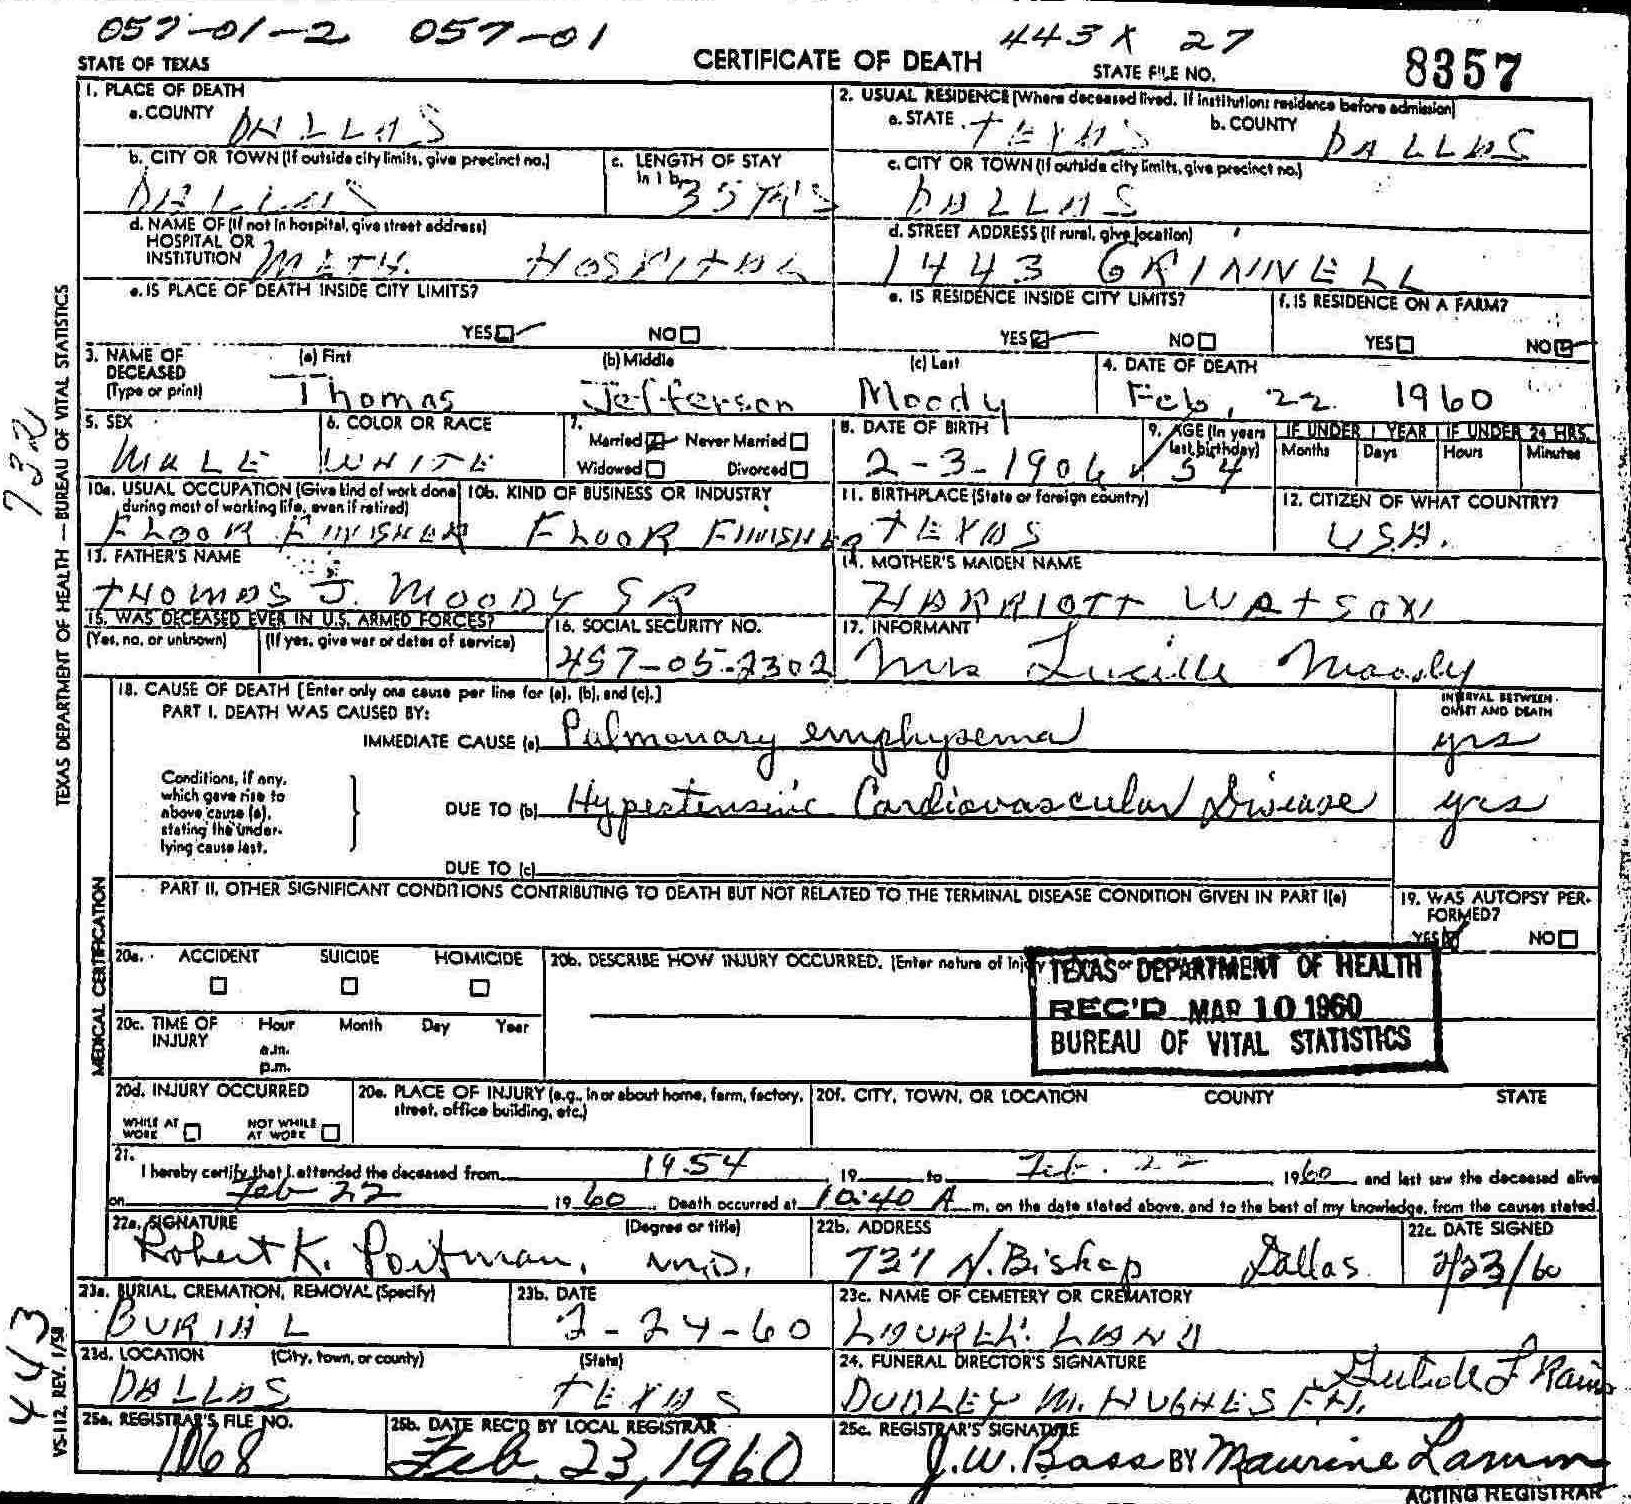 057-01-2 057-01 443X 27
STATE OF TEXAS CERTIFICATE OF DEATH STATE FILE NO. 8357
1. PLACE OF DEATH
a. COUNTY DALLAS
2. USUAL RESIDENCE (Where deceased lived. If institution: residence before admission)
a. STATE TEXAS b. COUNTY DALLAS
b. CITY OR TOWN (If outside city limits, give precinct no.) DALLAS
c. LENGTH OF STAY in 1 b. 35 YRS
c. CITY OR TOWN (If outside city limits, give precinct no.) DALLAS
d. NAME OF (If not in hospital, give street address)
HOSPITAL OR
INSTITUTION METH. HOSPITAL
d. STREET ADDRESS (If rural, give location)
1443 GRINNELL
e. IS PLACE OF DEATH INSIDE CITY LIMITS?
YES NO
e. IS RESIDENCE INSIDE CITY LIMITS?
YES NO
f. IS RESIDENCE ON A FARM?
YES NO
3. NAME OF DECEASED (Type or print)
(a) First (b) Middle (c) Last
Thomas Jefferson Moody
4. DATE OF DEATH
Feb, 22 1960
5. SEX
MALE
6. COLOR OR RACE
WHITE
7.
Married Never Married
Widowed Divorced
8. DATE OF BIRTH
2-3-1906
9. AGE (In years last birthday)
54
IF UNDER 1 YEAR IF UNDER 24 HRS.
Months Days Hours Minutes
10a. USUAL OCCUPATION (Give kind of work done during most of working life, even if retired)
FLOOR FINISHER
10b. KIND OF BUSINESS OR INDUSTRY
FLOOR FINISHER
11. BIRTHPLACE (State or foreign country)
TEXAS
12. CITIZEN OF WHAT COUNTRY?
USA.
13. FATHER'S NAME
THOMAS J. MOODY SR
14. MOTHER'S MAIDEN NAME
HARRIOTT WATSON
15. WAS DECEASED EVER IN U.S. ARMED FORCES?
(Yes, no, or unknown) (If yes, give war or dates of service)
16. SOCIAL SECURITY NO.
457-05-2302
17. INFORMANT
Mrs Lucille Moody
MEDICAL CERTIFICATION
18. CAUSE OF DEATH [Enter only one cause per line for (a), (b), and (c).]
PART I. DEATH WAS CAUSED BY:
INTERVAL BETWEEN ONSET AND DEATH
IMMEDIATE CAUSE (a) Pulmonary emphysema yrs
Conditions, if any, which gave rise to above cause (a), stating the underlying cause last.
DUE TO (b) Hypertensive Cardiovascular Disease yrs
DUE TO (c)
PART II. OTHER SIGNIFICANT CONDITIONS CONTRIBUTING TO DEATH BUT NOT RELATED TO THE TERMINAL DISEASE CONDITION GIVEN IN PART I(a)
19. WAS AUTOPSY PERFORMED?
YES NO
20a. ACCIDENT SUICIDE HOMICIDE
20b. DESCRIBE HOW INJURY OCCURRED. (Enter nature of injury
TEXAS DEPARTMENT OF HEALTH
REC'D MAR 10 1960
BUREAU OF VITAL STATISTICS
20c. TIME OF INJURY Hour Month Day Year
a.m.
p.m.
20d. INJURY OCCURRED
WHILE AT WORK NOT WHILE AT WORK
20e. PLACE OF INJURY (e.g., in or about home, farm, factory, street, office building, etc.)
20f. CITY, TOWN, OR LOCATION COUNTY STATE
21.
I hereby certify that I attended the deceased from 1954, 19 to Feb. 22, 1960 and last saw the deceased alive
on Feb 22 1960. Death occurred at 10:40 A m. on the date stated above, and to the best of my knowledge, from the causes stated.
22a. SIGNATURE (Degree or title)
Robert K. Portman, M.D.
22b. ADDRESS
737 N. Bishop Dallas
22c. DATE SIGNED
2/23/60
23a. BURIAL, CREMATION, REMOVAL (Specify)
BURIAL
23b. DATE
2-24-60
23c. NAME OF CEMETERY OR CREMATORY
LAUREL LAND
23d. LOCATION (City, town, or county) (State)
DALLAS TEXAS
24. FUNERAL DIRECTOR'S SIGNATURE
DUDLEY M. HUGHES F.H.
25a. REGISTRAR'S FILE NO.
1068
25b. DATE REC'D BY LOCAL REGISTRAR
Feb. 23, 1960
25c. REGISTRAR'S SIGNATURE
J.W. Bass BY Maurine
ACTING REGISTRAR
TEXAS DEPARTMENT OF HEALTH — BUREAU OF VITAL STATISTICS
732
443
VS-112, REV. 1/58